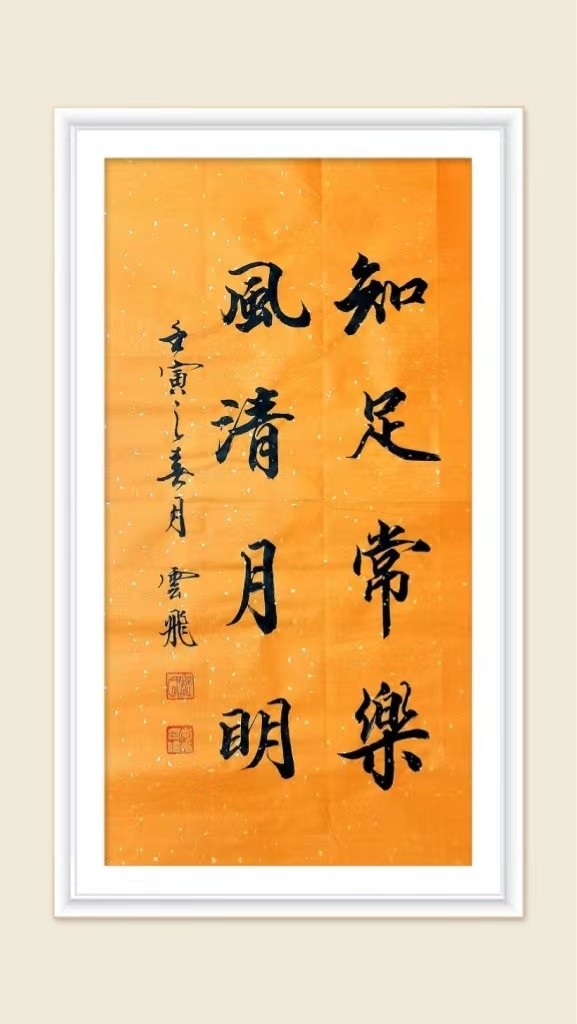 知足常樂
風清月明
壬寅之春月 雲飛